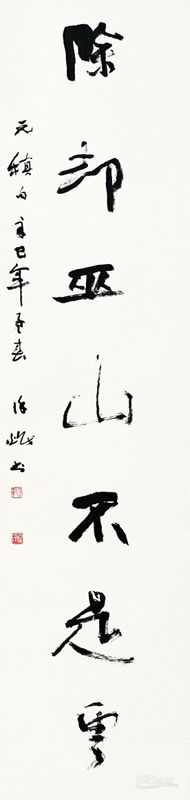 除却巫山不是雲
元稹句辛巳年孟春